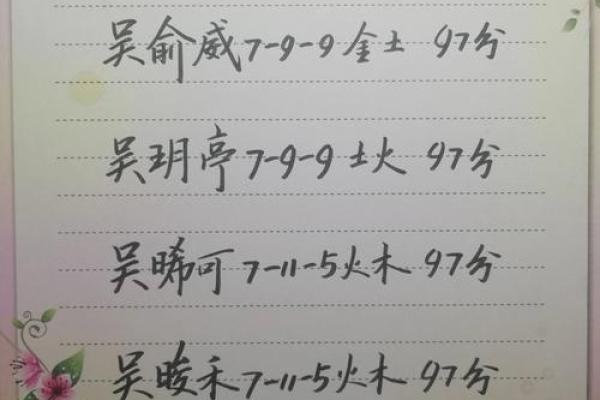 吴俞威7-9-9金土 97分
吴玥亭7-9-9土火 97分
吴晞可7-11-5火木 97分
吴晙禾7-11-5火木 97分